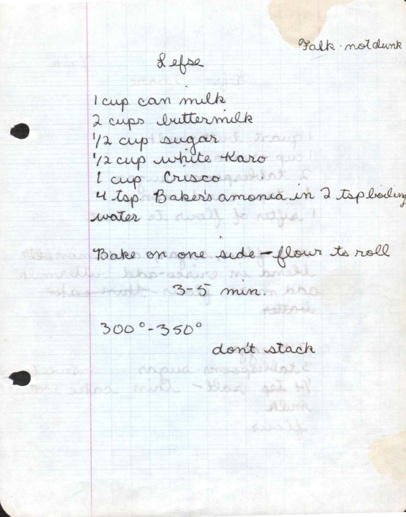 Falk - not dunk
Lefse
1 cup can milk
2 cups buttermilk
1/2 cup sugar
1/2 cup white Karo
1 cup Crisco
4 tsp. Baker's amonia in 2 tsp boiling
water
Bake on one side - flour to roll
3-5 min.
300° - 350°
don't stack